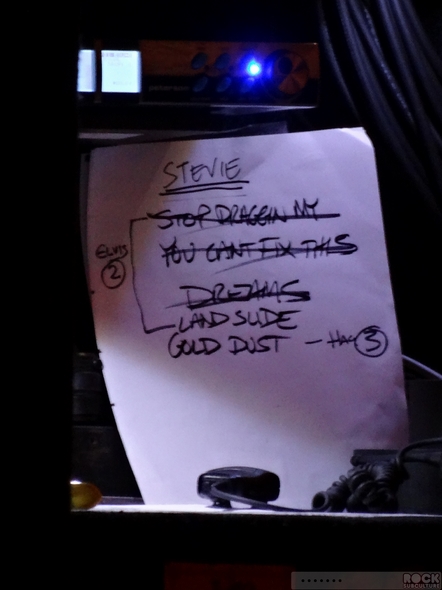 peterson
STEVIE
STOP DRAGGIN MY
YOU CANT FIX THIS
ELVIS
2
DREAMS
LANDSLIDE
GOLD DUST - 3
ROCK
SUBCULTURE